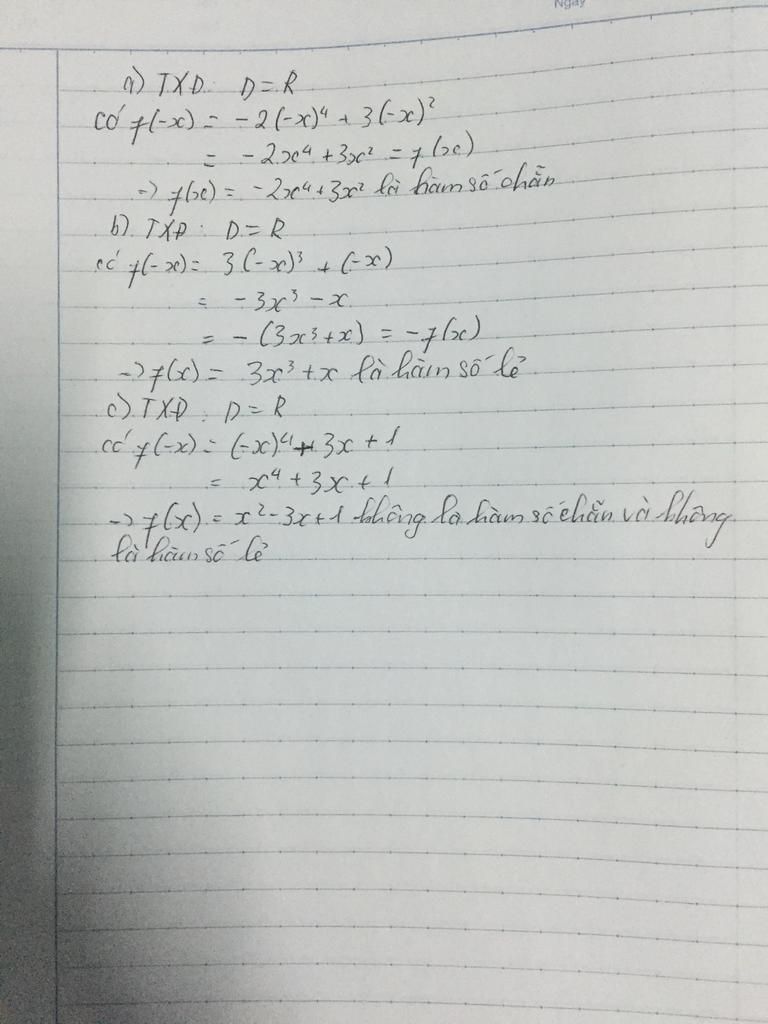 Ngày
a) TXD: D = R
có f(-x) = -2(-x)⁴ + 3(-x)²
= -2x⁴ + 3x² = f(x)
→ f(x) = -2x⁴ + 3x² là hàm số chẵn
b) TXD: D = R
có f(-x) = 3(-x)³ + (-x)
= -3x³ - x
= -(3x³ + x) = -f(x)
→ f(x) = 3x³ + x là hàm số lẻ
c) TXD: D = R
có f(-x) = (-x)⁴ + 3x + 1
= x⁴ + 3x + 1
→ f(x) = x² - 3x + 1 không là hàm số chẵn và không
là hàm số lẻ